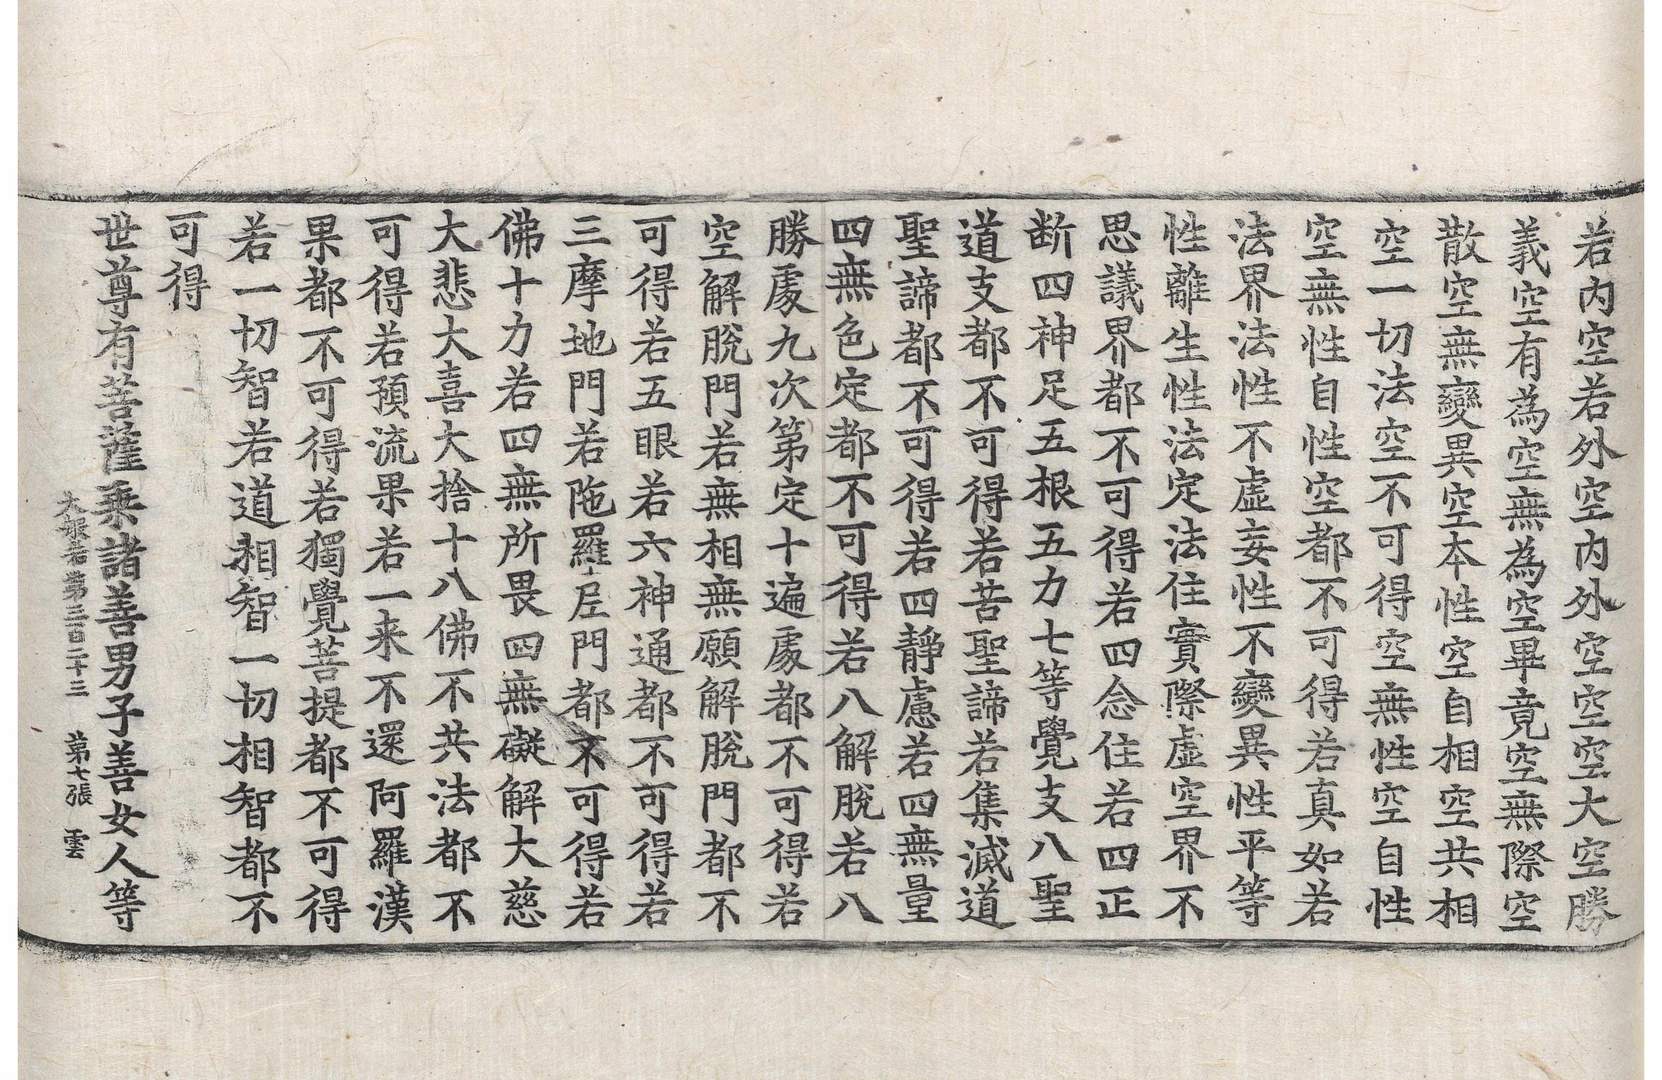 若內空若外空內外空空空大空勝
義空有為空無為空畢竟空無際空
散空無變異空本性空自相空共相
空一切法空不可得空無性空自性
空無性自性空都不可得若真如若
法界法性不虛妄性不變異性平等
性離生性法定法住實際虛空界不
思議界都不可得若四念住若四正
断四神足五根五力七等覺支八聖
道支都不可得若苦聖諦若集滅道
聖諦都不可得若四靜慮若四無量
四無色定都不可得若八解脫若八
勝處九次第定十遍處都不可得若
空解脫門若無相無願解脫門都不
可得若五眼若六神通都不可得若
三摩地門若陁羅尼門都不可得若
佛十力若四無所畏四無礙解大慈
大悲大喜大捨十八佛不共法都不
可得若預流果若一来不還阿羅漢
果都不可得若獨覺菩提都不可得
若一切智若道相智一切相智都不
可得
世尊有菩薩乘諸善男子善女人等
大般若第三百二十三 第七張 雲